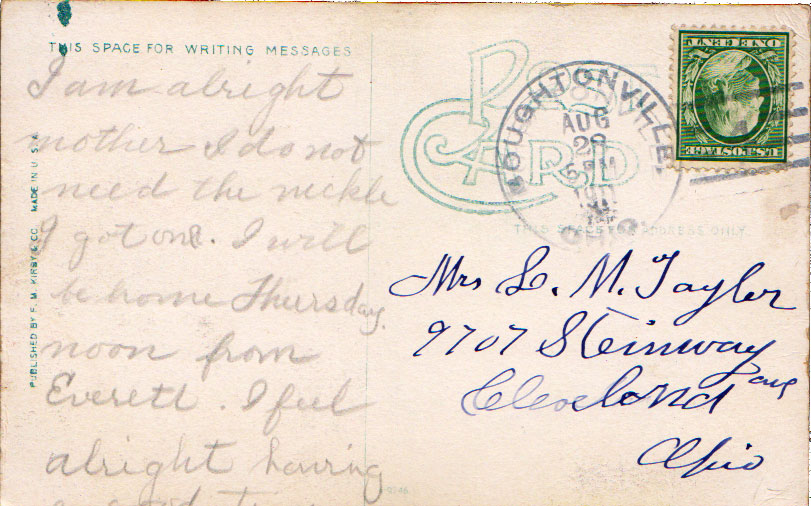 THIS SPACE FOR WRITING MESSAGES
I am alright
mother I do not
need the neckle
I got one. I will
be home Thursday.
noon from
Everett. I feel
alright having
a good time
PUBLISHED BY F. M. KIRBY & CO. MADE IN U.S.A.
POST
CARD
BOUGHTONVILLE
AUG
29
PM
1911
OHIO
U.S. POSTAGE
ONE CENT
THIS SPACE FOR ADDRESS ONLY.
Mrs L. M. Taylor
9707 Steinway
ave
Cleveland
Ohio